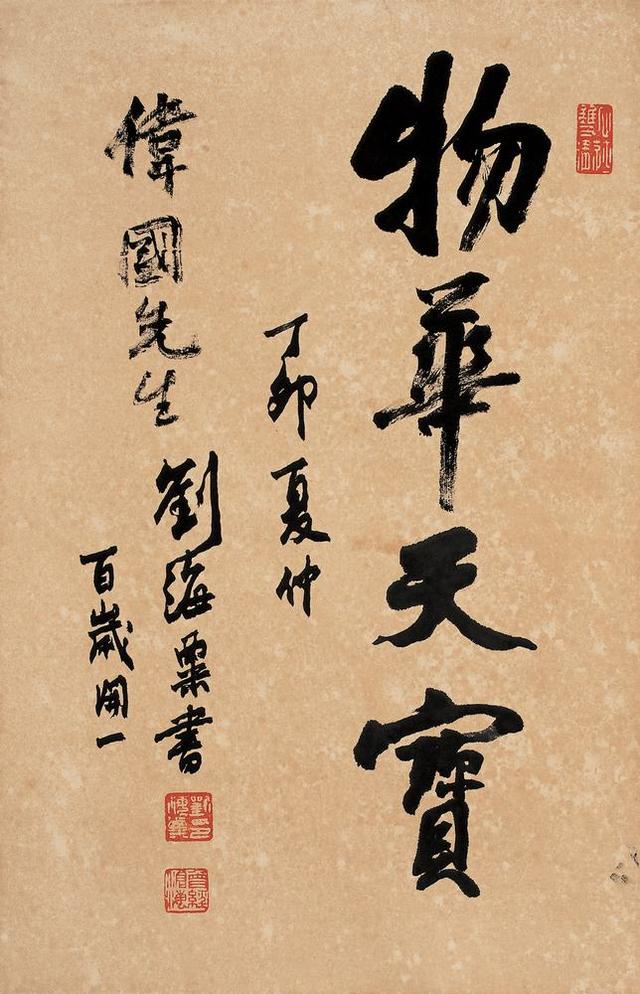 物華天寶
丁卯夏仲
偉國先生
劉海粟書
百歲開一